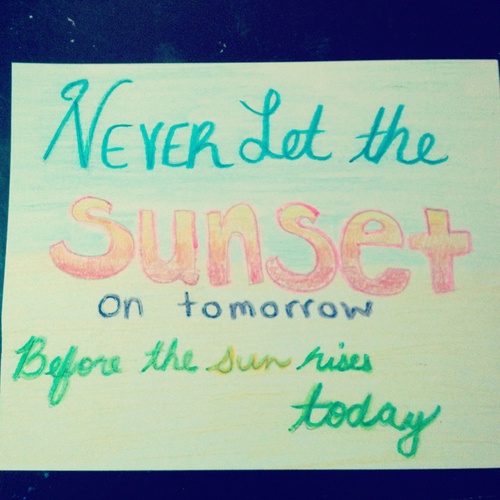 Never Let the
sunset
on tomorrow
Before the sun rises
today